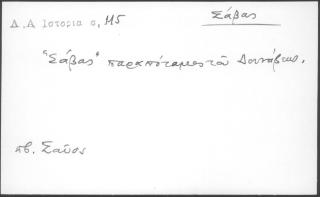 Σάβας
Δ.Α Ιστορία σ, 115
"Σάβας" παραπόταμος τοῦ Δουνάβεως.
πβ. Σαῦος